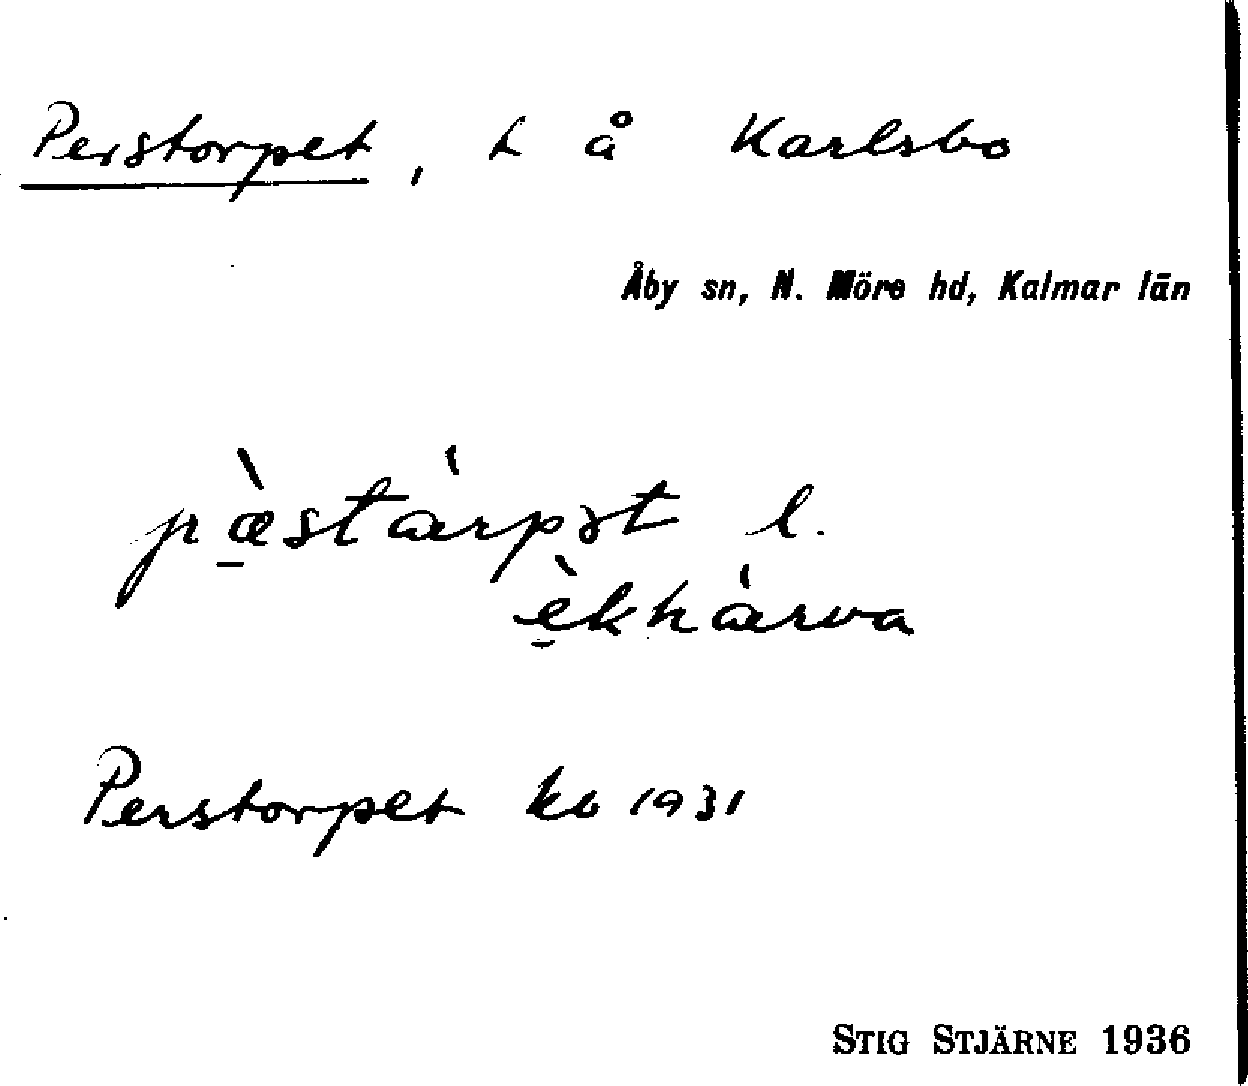 Perstorpet, t å Karlsbo
Åby sn, N. Möre hd, Kalmar län
pæ̀stárpət l.
èkhárva
Perstorpet kb 1931
STIG STJÄRNE 1936